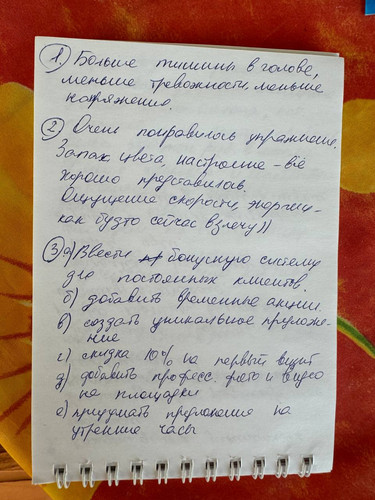 1. Больше тишины в голове,
меньше тревожности, меньше
напряжение.
2 Очень понравилось упражнение.
Запах цвета, настроение - всё
хорошо представилось.
Ощущение скорости, энергии -
как будто сейчас взлечу))
3 а) Ввести бонусную систему
для постоянных клиентов.
б) добавить временные акции
в) создать уникальное приложе-
ние
г) скидка 10% на первый визит
д) добавить професс. фото и видео
на площадки
е) придумать предложения на
утренние часы